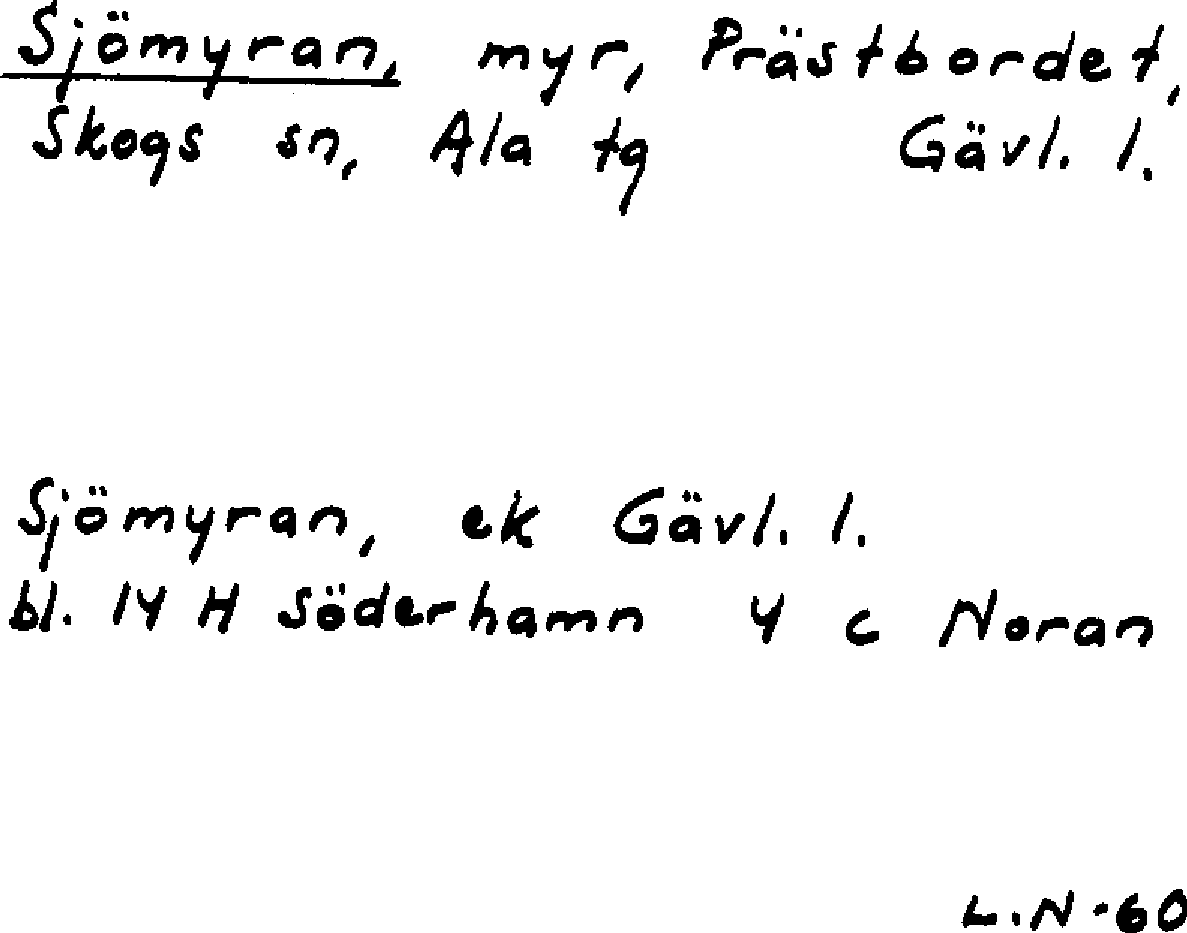 Sjömyran, myr, Prästbordet,
Skogs sn, Ala tg Gävl. l.
Sjömyran, ek Gävl. l.
bl. 14 H Söderhamn 4 c Noran
L.N-60